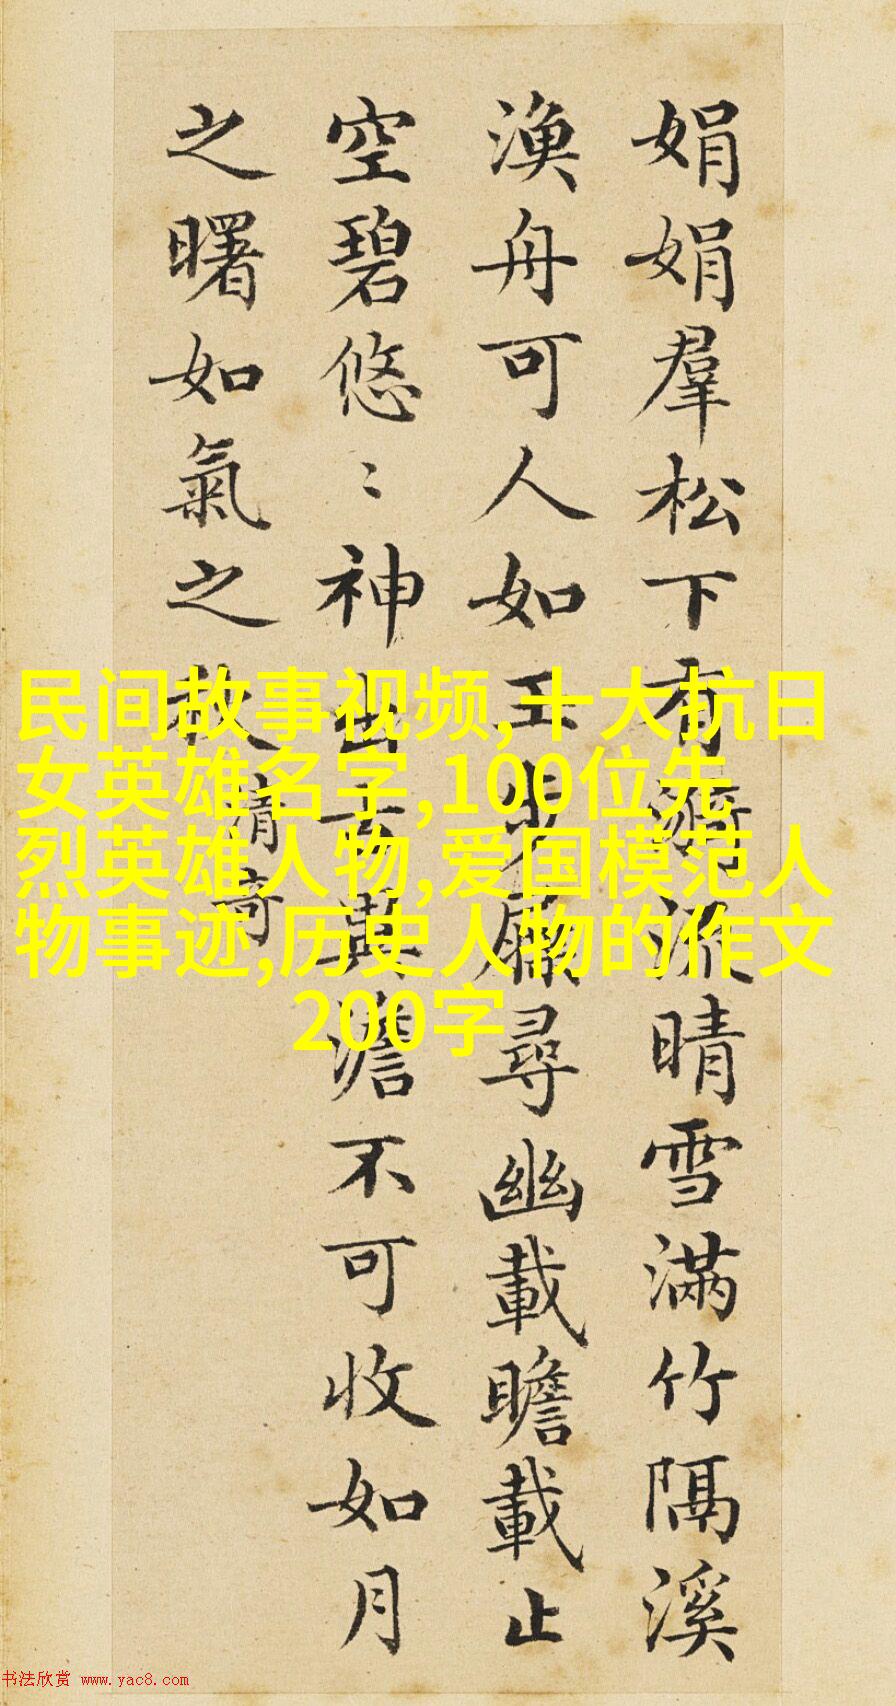 娟娟羣松下有漪流晴雪滿竹隔溪
漁舟可人如玉步屧尋幽載瞻載止
空碧悠〻神出古異澹不可收如月
之曙如氣之秋
清奇
民间故事视频,十大抗日
女英雄名字,100位先
烈英雄人物,爱国模范人
物事迹,历史人物的作文
200字
书法欣赏 www.yac8.com